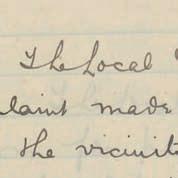 The Local
laint made
the vicinit